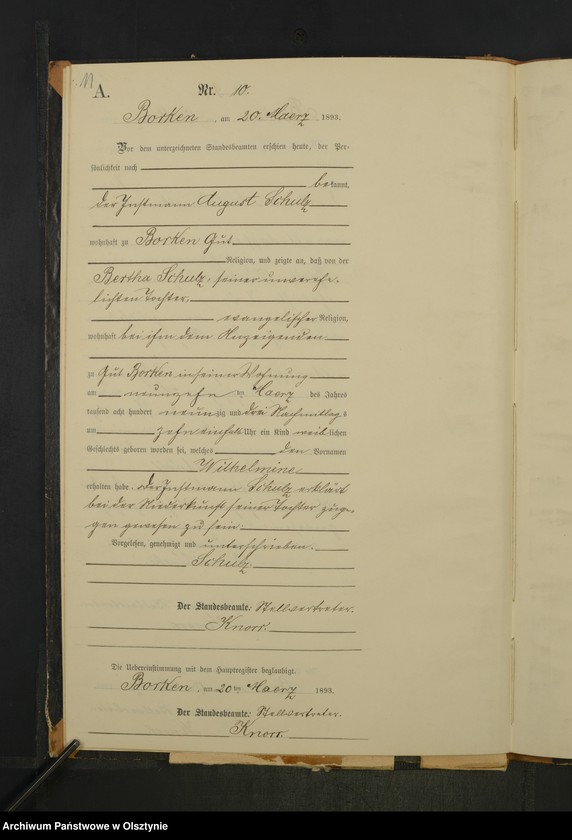 11
A.
Nr. 10.
Borken, am 20. Maerz 1893.
Vor dem unterzeichneten Standesbeamten erschien heute, der Per-
sönlichkeit nach
bekannt,
der Instmann August Schulz
wohnhaft zu Borken Gut
Religion, und zeigte an, daß von der
Bertha Schulz, seiner unverehe-
lichten Tochter,
evangelischer Religion,
wohnhaft bei ihm dem Anzeigenden
zu Gut Borken in seiner Wohnung
am neunzehn ten Maerz des Jahres
tausend acht hundert neunzig und drei Nachmittags
um zehn einhalb Uhr ein Kind weiblichen
Geschlechts geboren worden sei, welches den Vornamen
Wilhelmine
erhalten habe. Der Instmann Schulz erklärt
bei der Niederkunft seiner Tochter zuge-
gen gewesen zu sein.
Vorgelesen, genehmigt und unterschrieben.
Schulz
Der Standesbeamte: Stellvertreter.
Knorr.
Die Uebereinstimmung mit dem Hauptregister beglaubigt.
Borken, am 20ten Maerz 1893.
Der Standesbeamte: Stellvertreter.
Knorr.
Archiwum Państwowe w Olsztynie